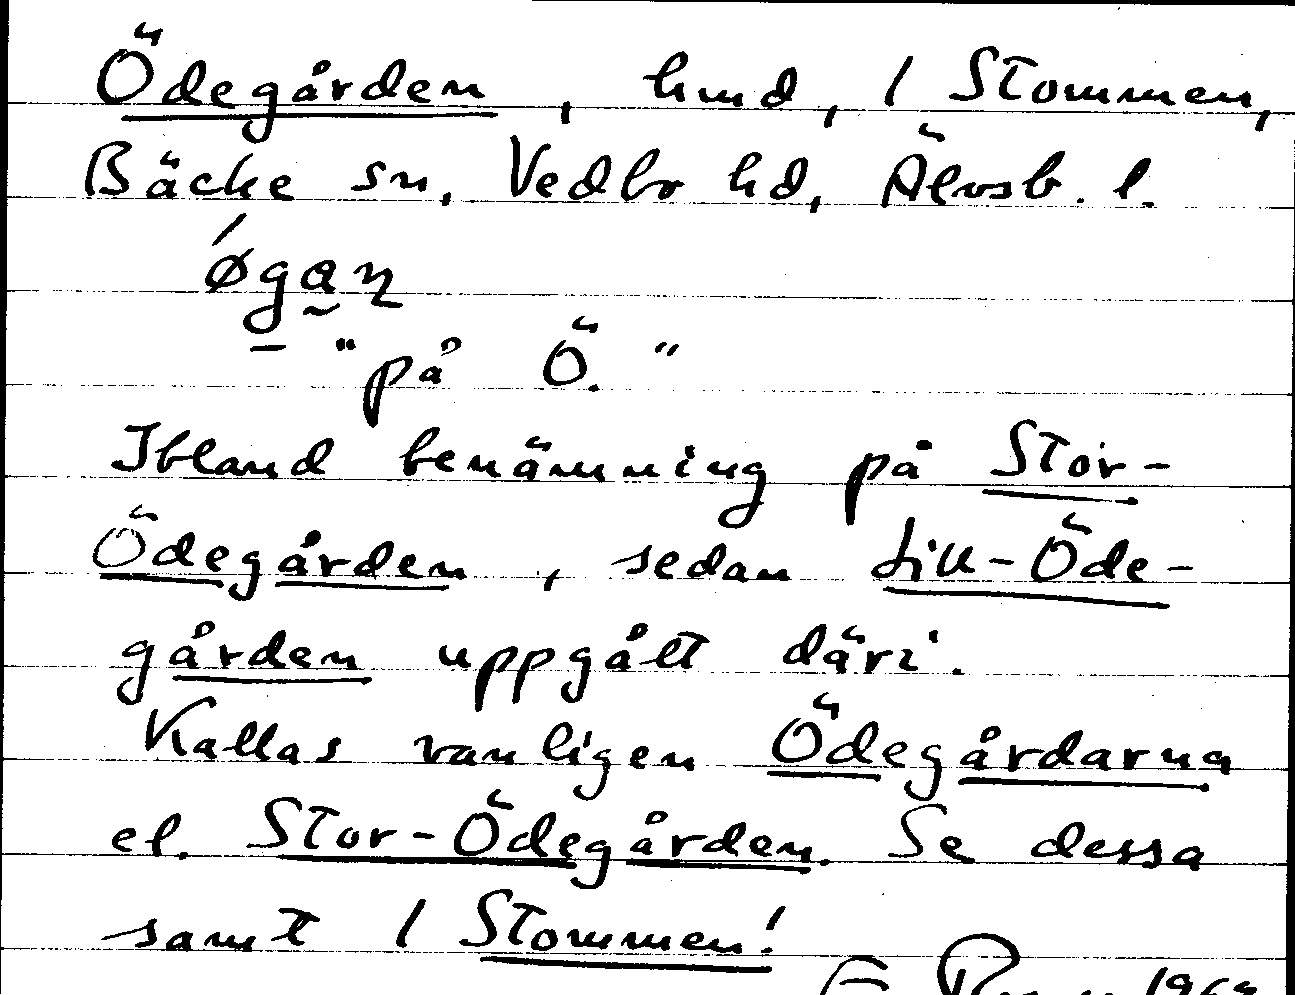 Ödegården, hmd, 1 Stommen,
Bäcke sn, Vedbo hd, Älvsb. l.
"på Ö."
Ibland benämning på Stor-
Ödegården, sedan Lill-Öde-
gården uppgått däri.
Kallas vanligen Ödegårdarna
el. Stor-Ödegården. Se dessa
samt 1 Stommen!